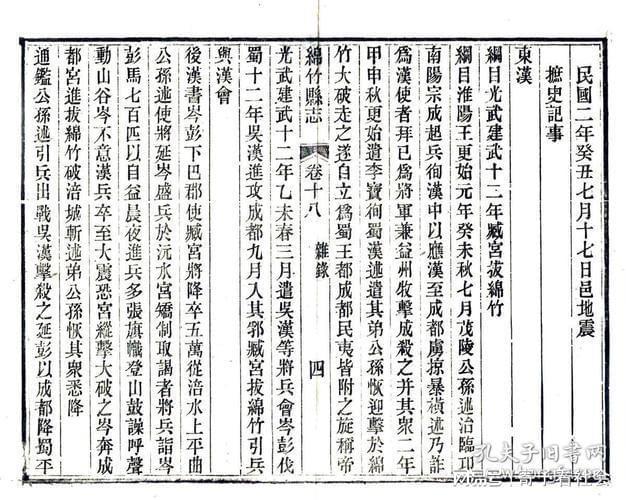 民國二年癸丑七月十七日邑地震
摭史記事
東漢
綱目光武建武十三年臧宮拔綿竹
綱目淮陽王更始元年癸未秋七月茂陵公孫述治臨邛
南陽宗成起兵徇漢中以應漢至成都虜掠暴橫述乃詐
爲漢使者拜已爲將軍兼益州牧擊成殺之并其衆二年
甲申秋更始遣李寶徇蜀漢述遣其弟公孫恢迎擊於綿
竹大破走之遂自立爲蜀王都成都民夷皆附之旋稱帝
綿竹縣志 卷十八 雜錄 四
光武建武十二年乙未春三月遣吳漢等將兵會岑彭伐
蜀十二年吳漢進攻成都九月入其郛臧宮拔綿竹引兵
與漢會
後漢書岑彭下巴郡使臧宮將降卒五萬從涪水上平曲
公孫述使將延岑盛兵於沅水宮矯制取謁者將兵詣岑
彭馬七百匹以自益晨夜進兵多張旗幟登山鼓譟呼聲
動山谷岑不意漢兵卒至大震恐宮縱擊大破之岑奔成
都宮進拔綿竹破涪城斬述弟公孫恢其衆悉降
通鑑公孫述引兵出戰吳漢擊殺之延彭以成都降蜀平
孔夫子旧书网